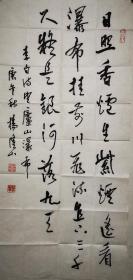 日照香爐生紫煙遙看
瀑布挂前川飛流直下三千
尺疑是銀河落九天
李白詩望廬山瀑布
庚午秋楊山